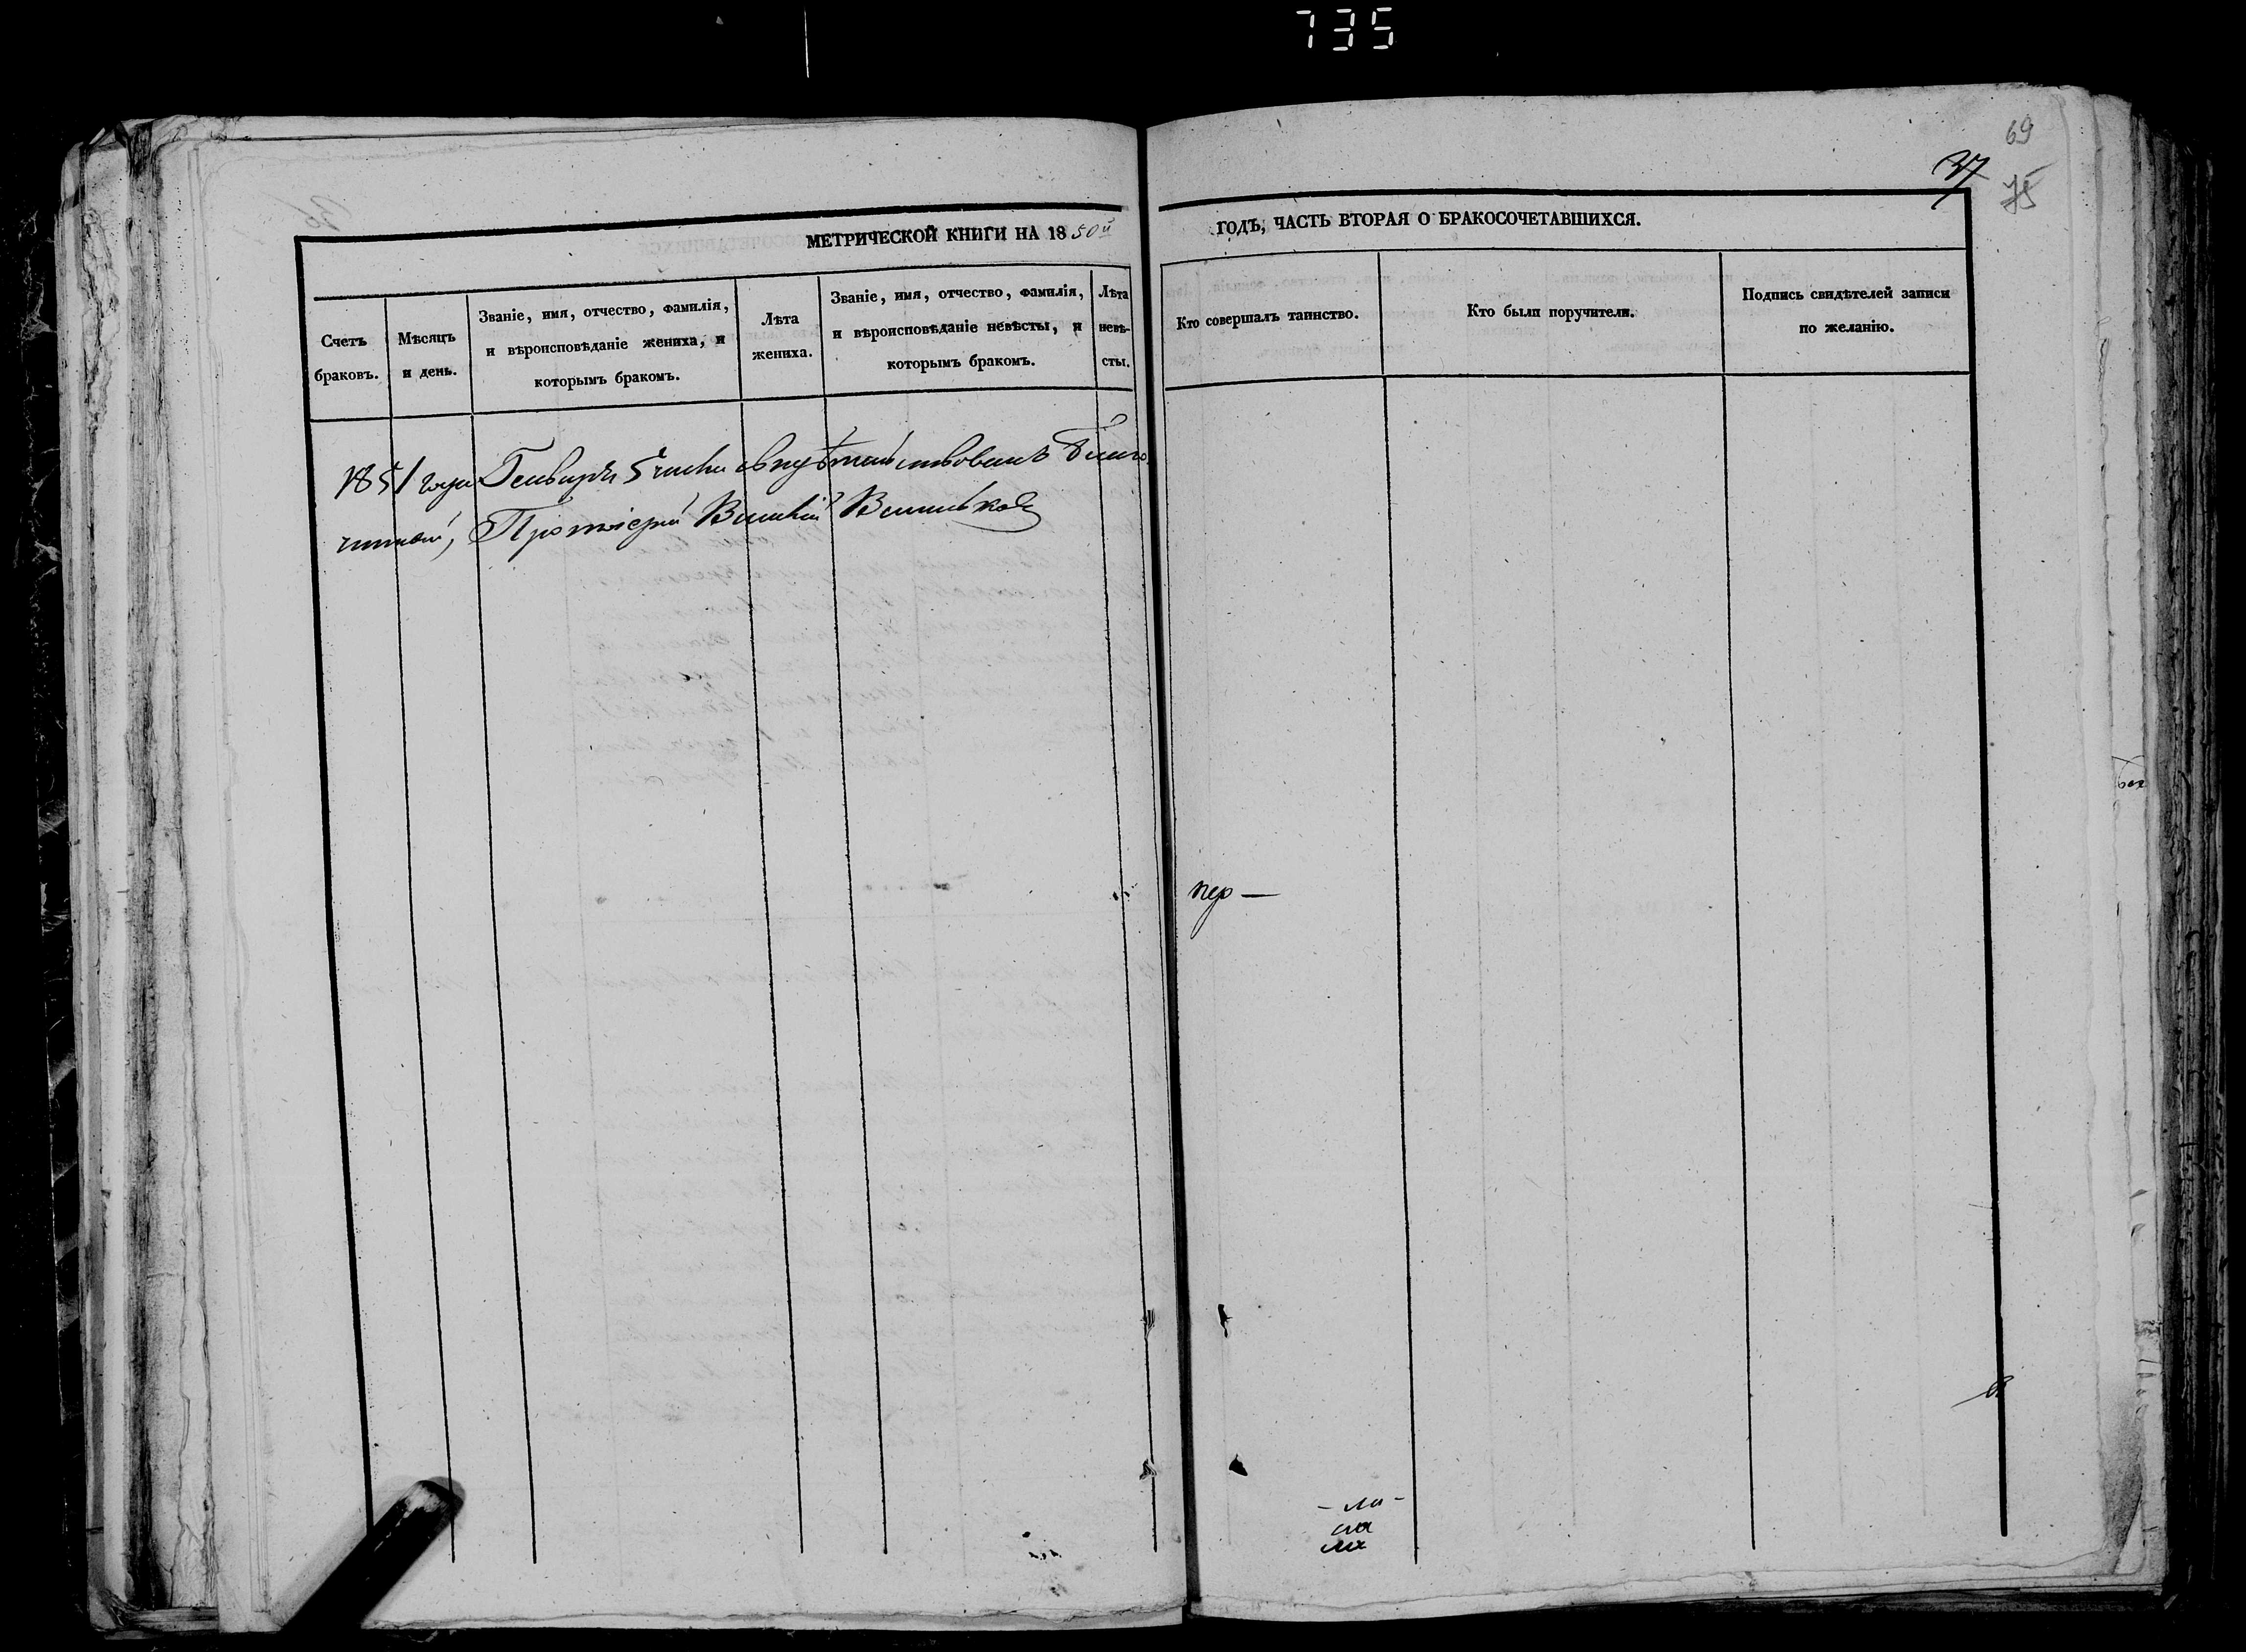 735
69
37
75
МЕТРИЧЕСКОЙ КНИГИ НА 1850й
ГОДЪ, ЧАСТЬ ВТОРАЯ О БРАКОСОЧЕТАВШИХСЯ.
Счетъ браковъ.
Мѣсяцъ и день.
Званіе, имя, отчество, фамилія,
и вѣроисповѣданіе жениха, и
которымъ бракомъ.
Лѣта жениха.
Званіе, имя, отчество, фамилія,
и вѣроисповѣданіе невѣсты, и
которымъ бракомъ.
Лѣта невѣ-
сты.
Кто совершалъ таинство.
Кто были поручители.
Подпись свидѣтелей записи
по желанію.
1851 года Генваря 5 числа свидѣтельствовалъ Благо
чинный, Протоіерей
пер —